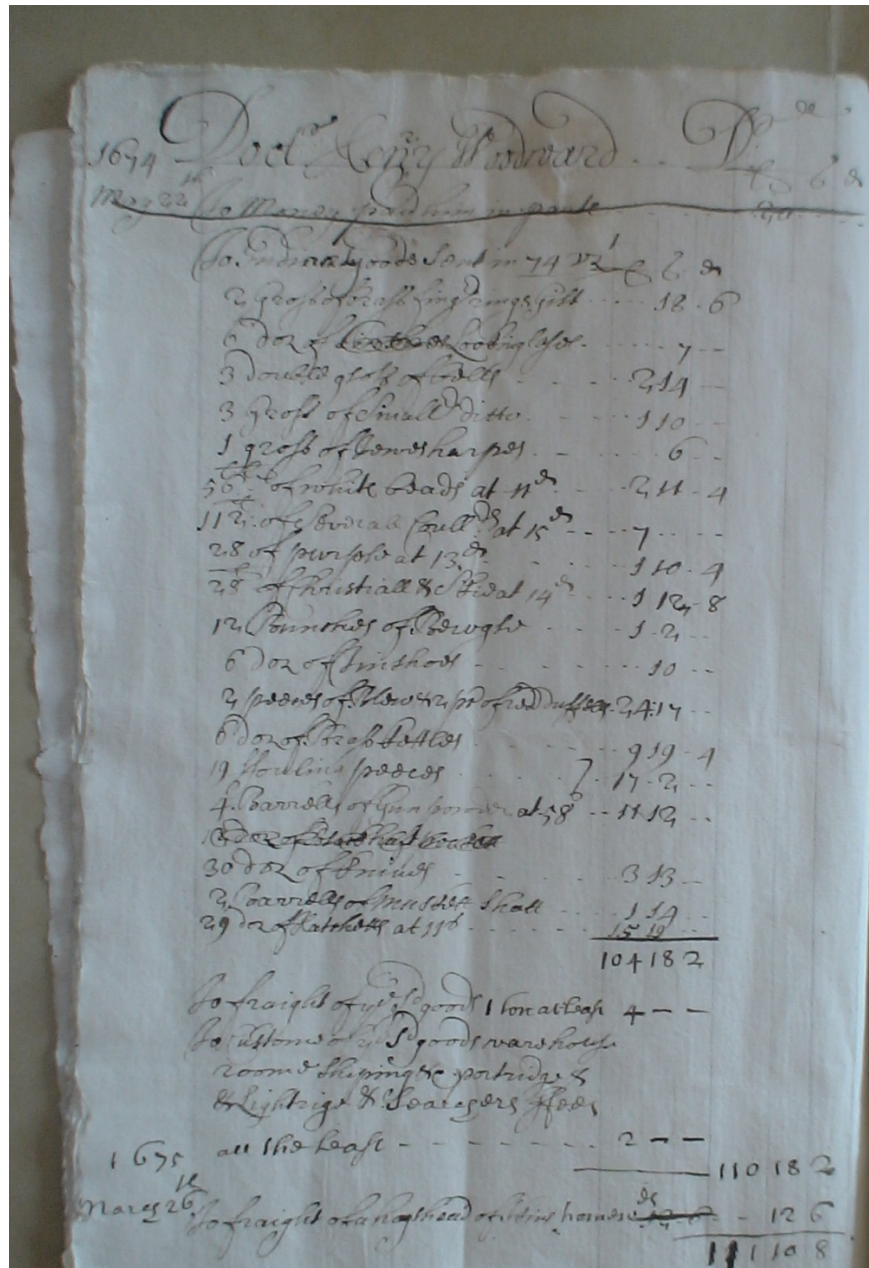 1674 Doctr Henry Woodward .. Dr
£ s d
May 22th To Money paid him in parte 20
To Indian goods Sent in 74 vizt £ s d
2 Gross of brass fing rings gilt 18 6
6 doz of Lookinglases 7
3 double gross of bells 2 14
3 Gross of Small ditto 1 10
1 gross of Jewesharpes 6
56 of white beads at 11d 2 11 4
112 of severall Coulld at 15d 7
28 of purple at 13d 1 10 4
28 of Christiall & at 14d 1 12 8
12 Bunches of Beugle 1 2
6 doz of 10
2 peeces of Blew & 2 ps of red duffen 24 17
6 doz of Brass kettles 9 19 4
19 fouling peeces 17 2
4 Barrells of Gun powder at 58s 11 12
30 doz of knives 3 13
2 barrells of muskett Shott 1 14
29 doz of hatchetts at 11s 15 19
104 18 2
To fraight of ye sd goods 1 ton at least 4 — —
To Custome of ye sd goods warehouse
roome Shiping & portridge &
& Lightrige & Searcgers ffees
all the least 2 — —
110 18 2
1675
March 26th To fraight of a hogshead of Skins home 12 6
111 10 8